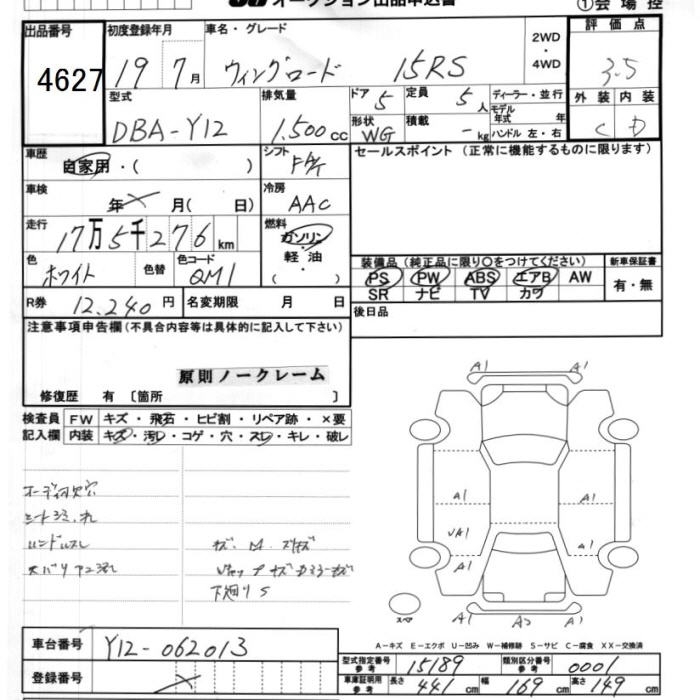 オークション出品申込書
①会場控
出品番号
4627
初度登録年月
19 7月
車名・グレード
ウィングロード 15RS
2WD
・
4WD
評価点
3.5
外装 内装
C D
型式
DBA-Y12
排気量
1,500cc
ドア 5
定員 5人
形状 WG
積載 -kg
ディーラー・並行
モデル年式 年
ハンドル 左・右
車歴
自家用・( )
シフト
FAT
セールスポイント (正常に機能するものに限ります)
車検
年 月( 日)
冷房
AAC
走行
17万5千276km
燃料
ガソリン
軽油
( )
色
ホワイト
色替
色コード
QM1
装備品 (純正品に限り○をつけてください)
新車保証書
PS PW ABS エアB AW
SR ナビ TV カワ
有・無
R券 12,240円
名変期限 月 日
後日品
注意事項申告欄(不具合内容等は具体的に記入して下さい)
原則ノークレーム
修復歴 有 〔箇所 〕
検査員 FW キズ・飛石・ヒビ割・リペア跡・×要
記入欄 内装 キズ・汚レ・コゲ・穴・スレ・キレ・破レ
ハンドルスレ
下廻りS
A1 A1
A1 A1
A1
A1 A1
A1 A2 A1
スペア
A-キズ E-エクボ U-凹み W-補修跡 S-サビ C-腐食 XX-交換済
車台番号
Y12-062013
登録番号
型式指定番号 参考 15189
類別区分番号 参考 0001
車庫証明用 参考 長さ 441cm 幅 169cm 高さ 149cm